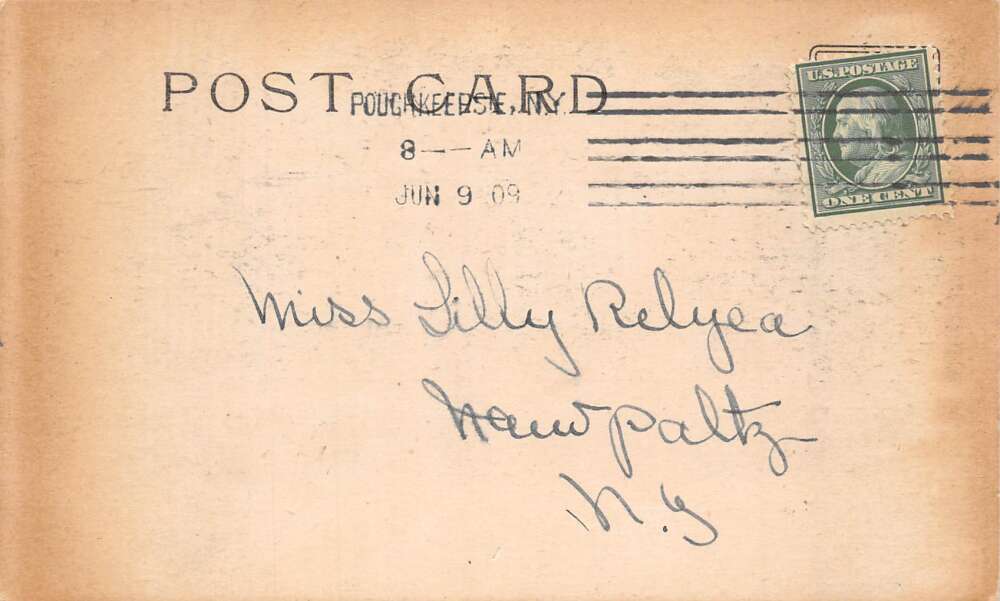 POST CARD
U.S. POSTAGE
POUGHKEEPSIE, N.Y.
8 — AM
JUN 9 09
ONE CENT
Miss Lilly Relyea
New Paltz
N.Y